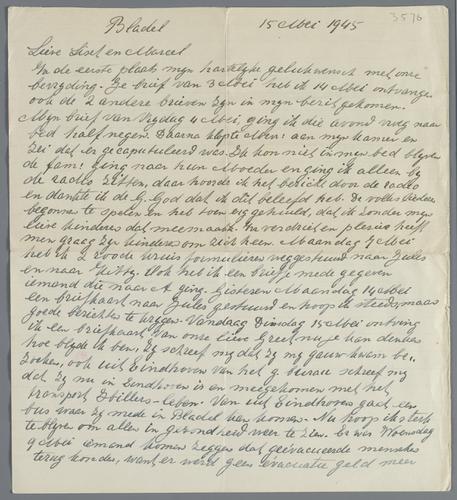 3576
Bladel 15 Mei 1945
Lieve Liset en Marcel
In de eerste plaats mijn hartelijke gelukwensch met onze
bevrijding. Je brief van 3 Mei heb ik 14 Mei ontvangen
ook de 2 andere brieven zijn in mijn bezit gekomen.
Mijn brief van Vrijdag 4 Mei, ging ik die avond vroeg naar
bed half negen. Daarna klopte aan mijn kamer en
zei dat er gecapituleerd was. Ik kon niet in mijn bed blijven
de fam: ging naar hun Moeder en ging ik alleen bij
de radio zitten, daar hoorde ik het bericht door de radio
en dankte ik de G. God dat ik dit beleefd heb. De volksliederen
begonnen te spelen en heb toen erg gehuild, dat ik zonder mijn
lieve kinderen dat meemaakte. In verdriet en plezier heeft
men graag zijn kinderen om zich heen. Maandag 7 Mei
heb ik 2 roode kruis formulieren weggestuurd naar Jules
en naar Jetty. Ook heb ik een briefje mede gegeven
iemand die naar A. ging. Gisteren Maandag 14 Mei
een briefkaart naar Jules gestuurd en hoop ik steeds maar
goede berichten te krijgen. Vandaag Dinsdag 15 Mei ontving
ik een briefkaart van onze lieve Greet nu je kan denken
hoe blij ik ben, zij schreef mij dat zij mij gauw kwam be-
zoeken, ook uit Eindhoven van het bureau schreef mij
dat zij nu in Eindhoven is en meegekomen met het
transport Philips-leden. Van uit Eindhoven gaat een
bus waar zij mede in Bladel kan komen. Nu hoop ik sterk
te blijven om allen in gezondheid weer te zien. Er is Woensdag
9 Mei iemand komen zeggen dat geëvacueerde menschen
terug konden, want er werd geen evacuatie geld meer